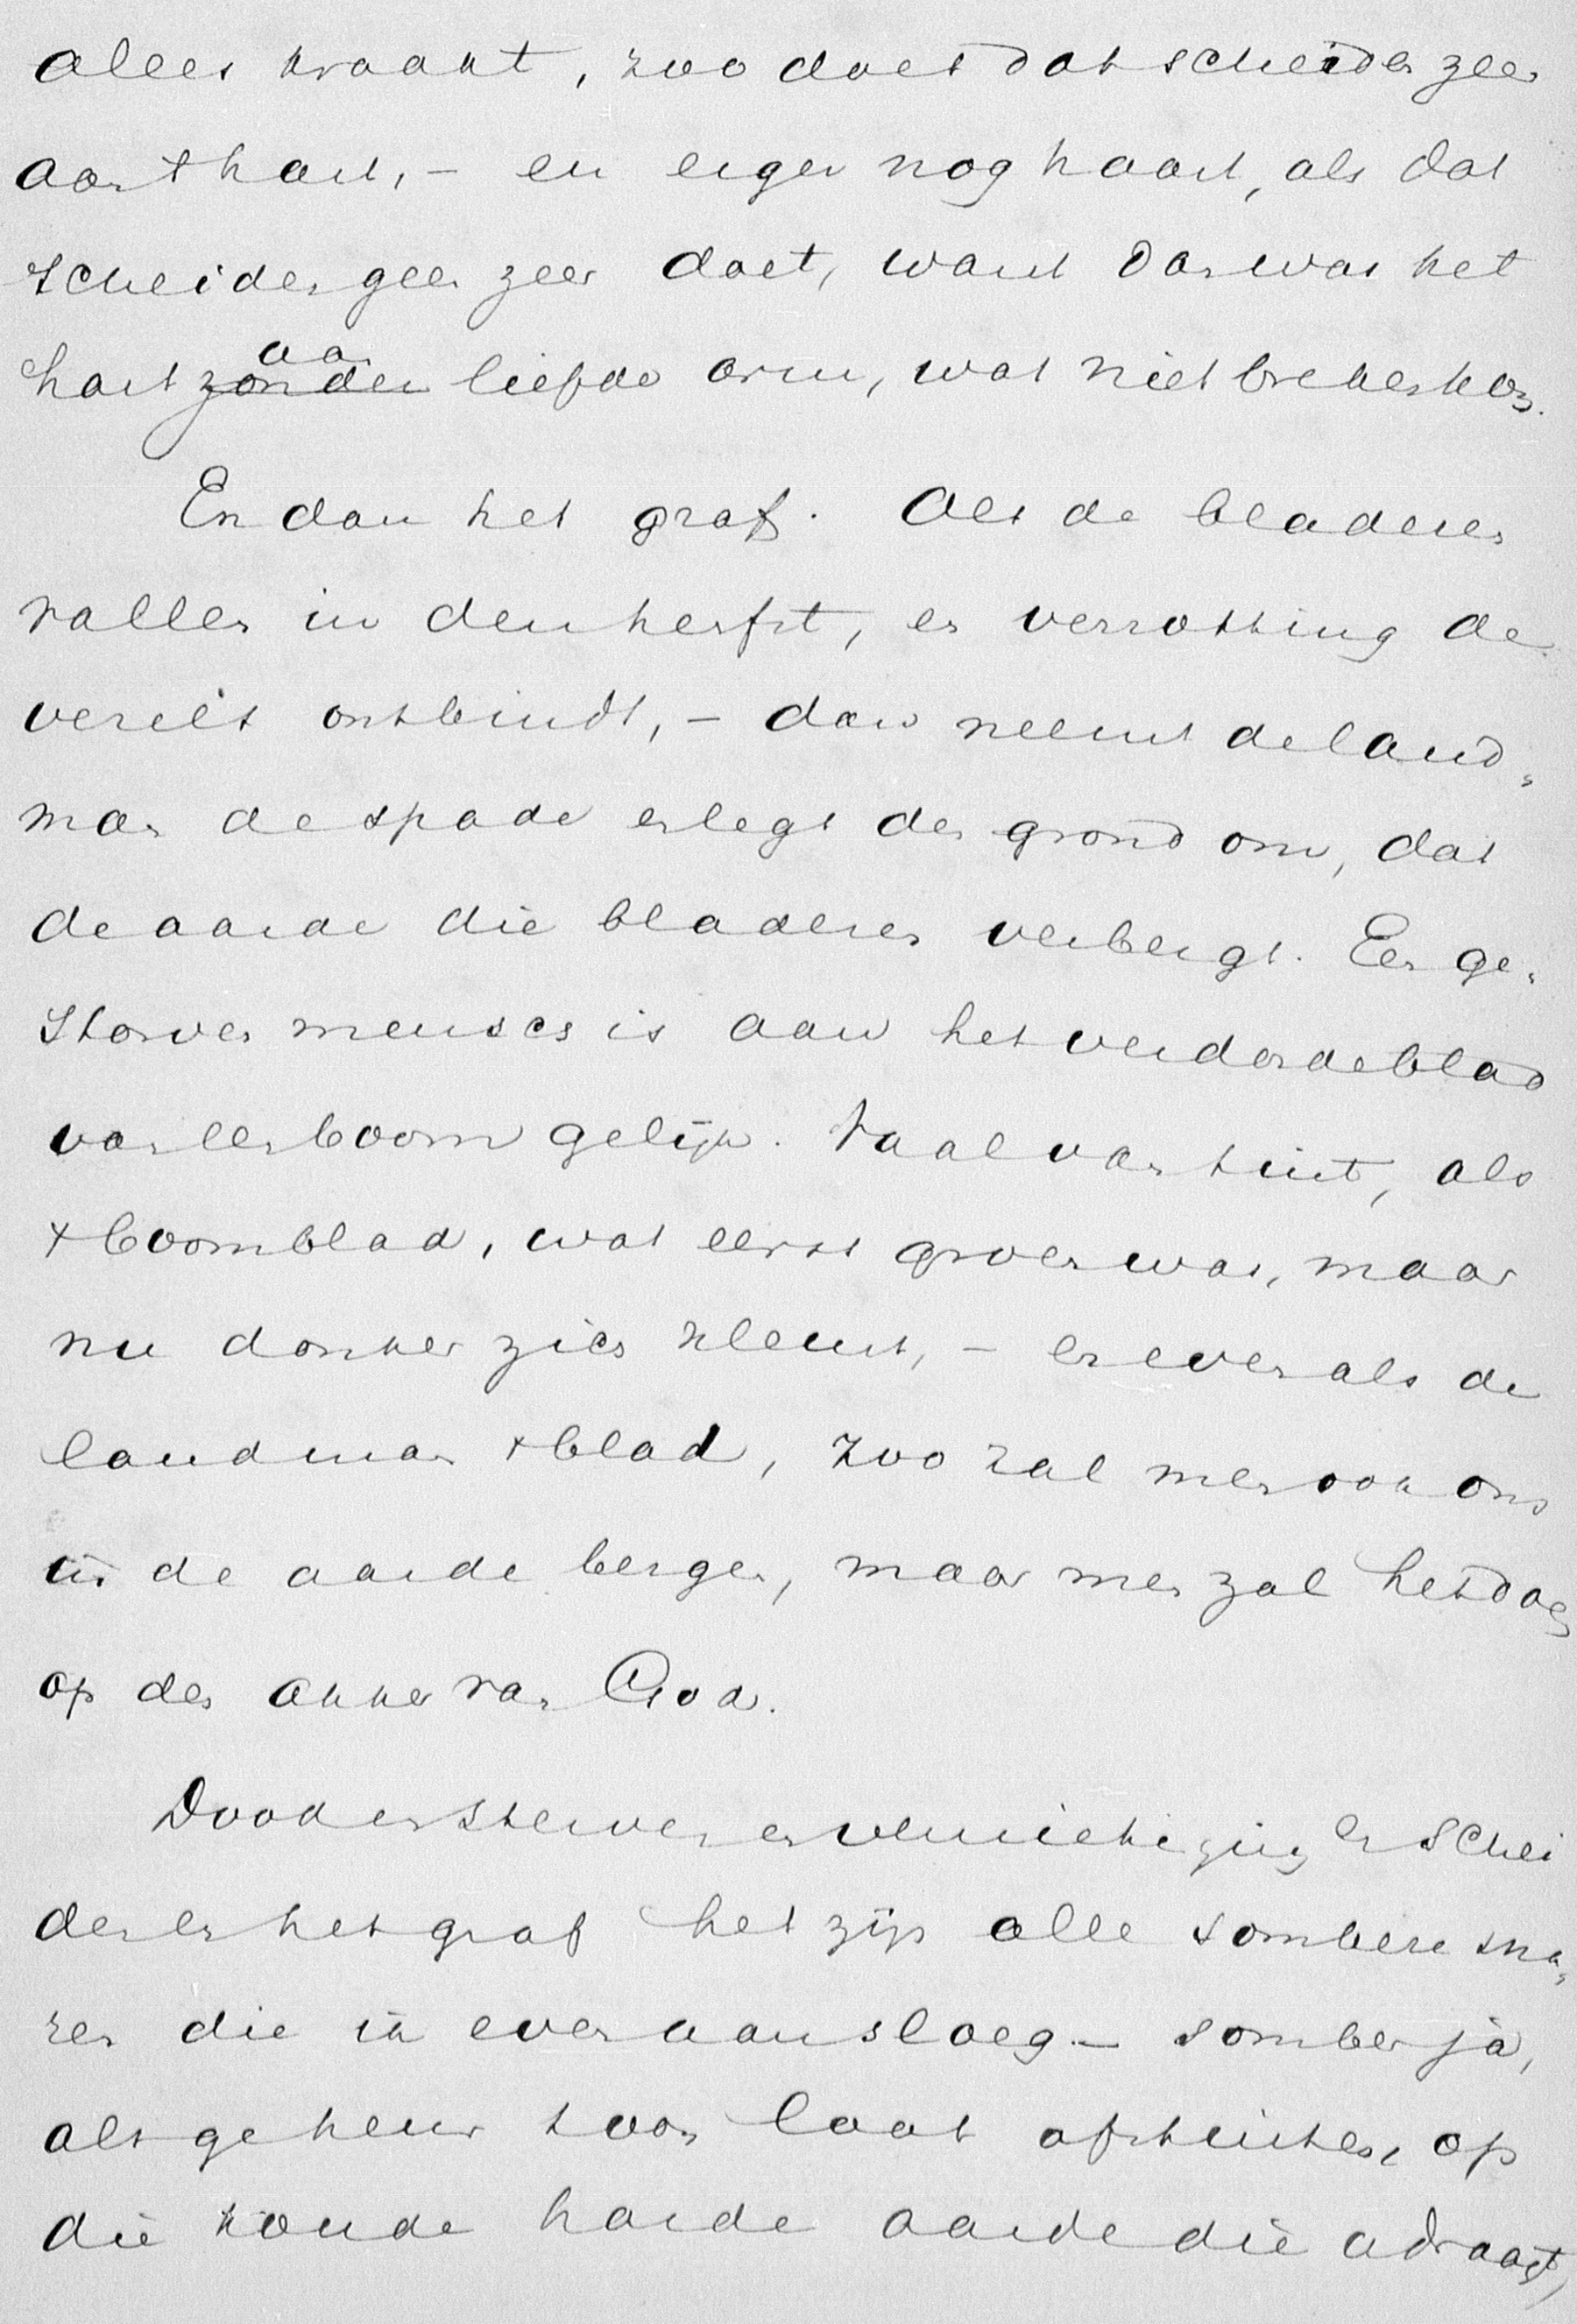 alles kraakt, zoo doet dat scheiden zeer
aan 't hart, – en erger nog haast, als dat
scheiden geen zeer doet, want dan was het
hart aan liefde arm, wat niet breken kon.
En dan het graf. Als de bladeren
vallen in den herfst, en verrotting de
vezels ontbindt, – dan neemt de land-
man de spade en legt den grond om, dat
de aarde die bladeren verbergt. Een ge-
storven mensch is aan het verdorde blad
van een boom gelijk. Vaal van tint, als
't boomblad, wat eerst groen was, maar
nu donker zich kleurt, – en even als de
landman 't blad, zoo zal men ook ons
in de aarde bergen, maar men zal het doen
op den akker van God.
Dood en sterven en vernietiging en schei
den en het graf het zijn alle sombere sna-
ren die ik even aansloeg – somber ja,
als ge heur toon laat afstuiten, op
die koude harde aarde die u draagt,